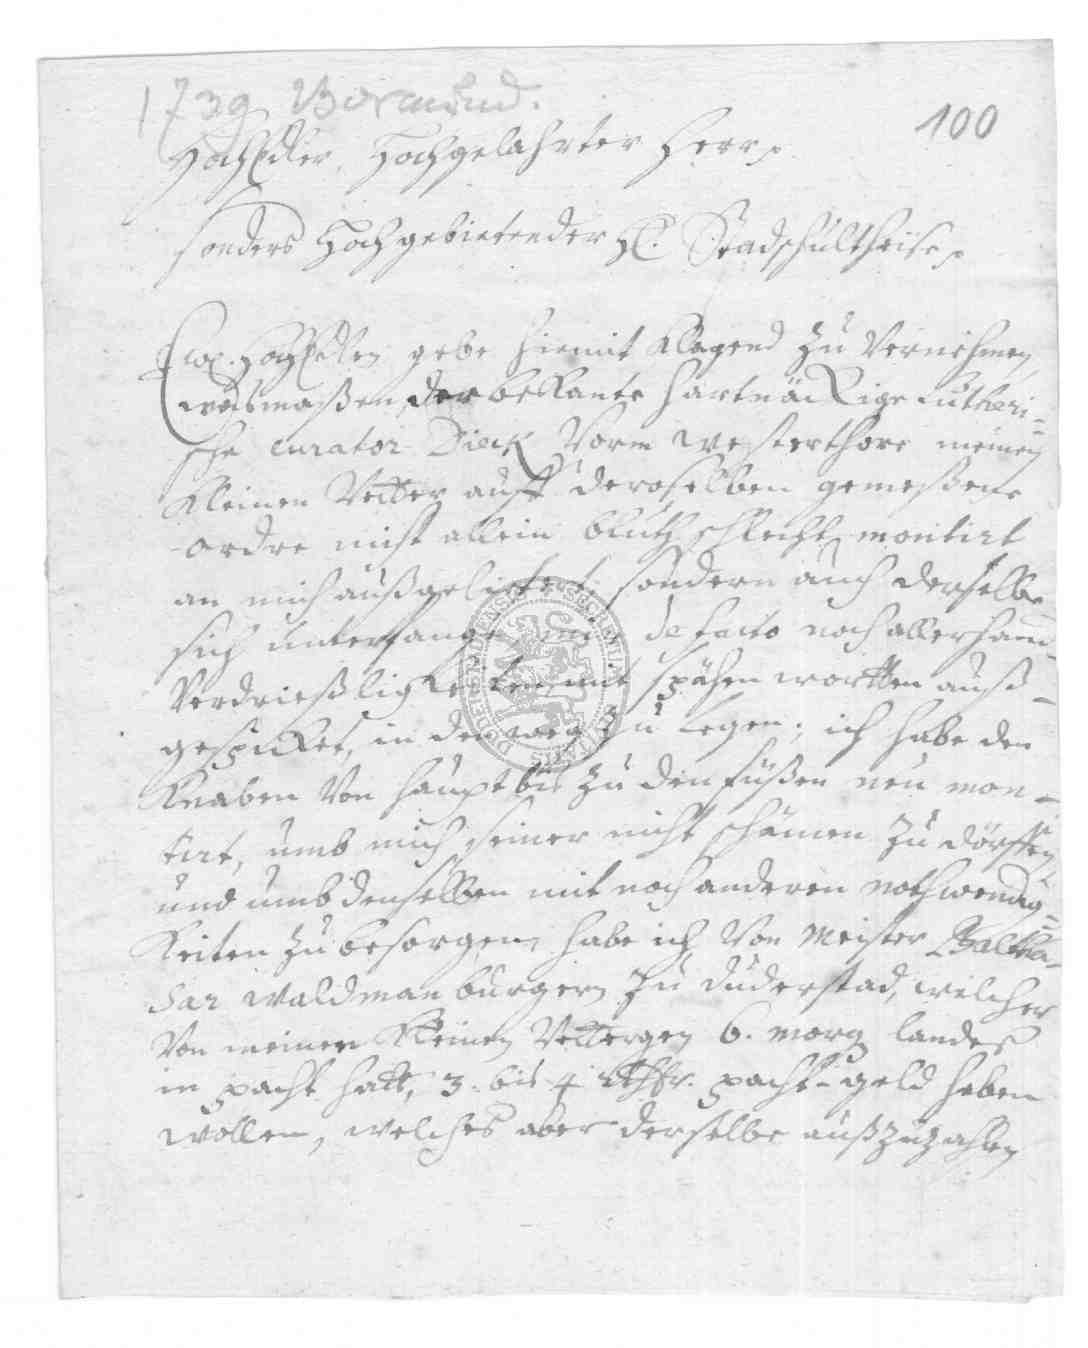 1739 Vormund.
100
HochEdler, Hochgelahrter Herr
sonders Hochgebietender H. Stadschultheise
Ew. HochEdlen gebe hiemit klagend zu vernehmen,
wasmaßen, der bekante hartnäckige Lutheri=
sche curator Dieck vorm westerthore meinen
kleinen Vetter auff deroselben gemeßene
ordre nicht allein bluth schlecht montirt
an mich außgeliefert, sondern auch derselbe
sich unterfangen mir de facto noch allerhand
Verdrießligkeiten mit spähen wortten auß=
gespicket, in den weg zu legen; ich habe den
Knaben von haupt bis zu den füßen neu mon=
tirt, umb mich seiner nicht schämen zu dörffen,
und umb denselben mit noch anderen nothwendig=
keiten zu besorgen, habe ich von Meister Baltha=
sar waldman burgern zu duderstad, welcher
von meinem kleinen Vettergen 6. morg landes
in pacht hatt, 3. bis 4 rthlr. pacht-geld heben
wollen, welches aber derselbe außzuzahlen